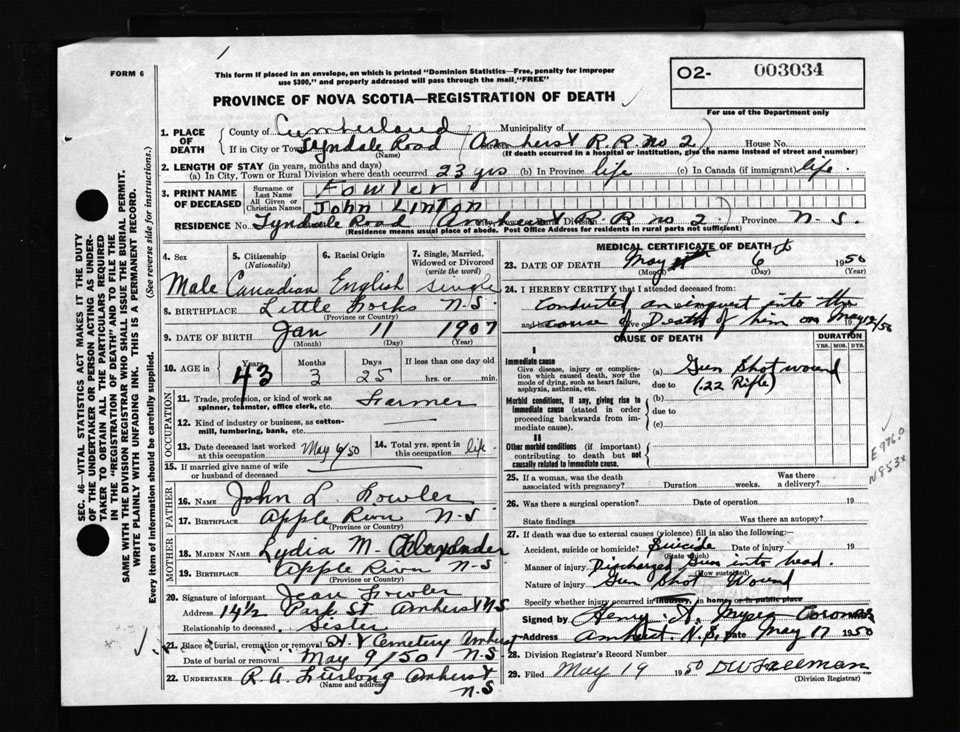 FORM 6
This form if placed in an envelope, on which is printed "Dominion Statistics—Free, penalty for improper
use $300," and properly addressed will pass through the mail "FREE"
PROVINCE OF NOVA SCOTIA—REGISTRATION OF DEATH
O2- 003034
For use of the Department only
SEC. 46—VITAL STATISTICS ACT MAKES IT THE DUTY
OF THE UNDERTAKER OR PERSON ACTING AS UNDER-
TAKER TO OBTAIN ALL THE PARTICULARS REQUIRED
IN THE "REGISTRATION OF DEATH" AND TO FILE THE
SAME WITH THE DIVISION REGISTRAR WHO SHALL ISSUE THE BURIAL PERMIT.
WRITE PLAINLY WITH UNFADING INK. THIS IS A PERMANENT RECORD.
Every item of information should be carefully supplied. (See reverse side for instructions.)
1. PLACE OF DEATH County of Cumberland Municipality of
If in City or Town Tyndale Road (Amherst R.R. no 2) House No.
(Name) (If death occurred in a hospital or institution, give the name instead of street and number)
2. LENGTH OF STAY (in years, months and days)
(a) In City, Town or Rural Division where death occurred 23 yrs (b) In Province life (c) In Canada (if immigrant) life.
3. PRINT NAME OF DECEASED Surname or Last Name Fowler
All Given or Christian Names John Linton
RESIDENCE No. Tyndale Road (Amherst R R no 2) Province N.S.
(Residence means usual place of abode. Post Office Address for residents in rural parts not sufficient)
4. Sex 5. Citizenship (Nationality) 6. Racial Origin 7. Single, Married, Widowed or Divorced (write the word)
Male Canadian English single
8. BIRTHPLACE Little Forks N.S.
(Province or Country)
9. DATE OF BIRTH Jan 11 1907
(Month) (Day) (Year)
10. AGE in Years Months Days If less than one day old
43 3 25 hrs. or min.
OCCUPATION
11. Trade, profession, or kind of work as spinner, teamster, office clerk, etc. Farmer
12. Kind of industry or business, as cotton-mill, lumbering, bank, etc.
13. Date deceased last worked at this occupation May 6/50 14. Total yrs. spent in this occupation life
15. If married give name of wife or husband of deceased
FATHER
16. NAME John L Fowler
17. BIRTHPLACE Apple River N.S.
(Province or Country)
MOTHER
18. MAIDEN NAME Lydia M. Alexander
19. BIRTHPLACE Apple River N-S
(Province or Country)
20. Signature of informant Jean Fowler
Address 14½ Park St. Amherst N.S
Relationship to deceased Sister
21. Place of burial, cremation or removal Cemetery Amherst
Date of burial or removal May 9/50 N-S
22. UNDERTAKER R. A. Furlong Amherst
(Name and address) N-S
MEDICAL CERTIFICATE OF DEATH
23. DATE OF DEATH May 6 1950
(Month) (Day) (Year)
24. I HEREBY CERTIFY that I attended deceased from:
Conducted an inquest into the
cause of Death of him on May 12/50
CAUSE OF DEATH
DURATION
YRS. MOS. DYS.
I
Immediate cause
Give disease, injury or complication which caused death, NOT the mode of dying, such as heart failure, asphyxia, asthenia, etc.
(a) Gun Shot wound
due to (.22 Rifle)
Morbid conditions, if any, giving rise to immediate cause (stated in order proceeding backwards from immediate cause).
(b)
due to
(c)
II
Other morbid conditions (if important) contributing to death but not causally related to immediate cause.
E976.0
N853x
25. If a woman, was the death associated with pregnancy? Duration weeks. Was there a delivery?
26. Was there a surgical operation? Date of operation 19
State findings Was there an autopsy?
27. If death was due to external causes (violence) fill in also the following:
Accident, suicide or homicide? Suicide Date of injury 19
(State which)
Manner of injury Discharged Gun into head.
(How sustained)
Nature of injury Gun Shot Wound
Specify whether injury occurred in industry, in home, or in public place
Signed by Henry A. Myers Coroner
Address Amherst N.S. Date May 17 1950
28. Division Registrar's Record Number
29. Filed May 19 1950
(Division Registrar)